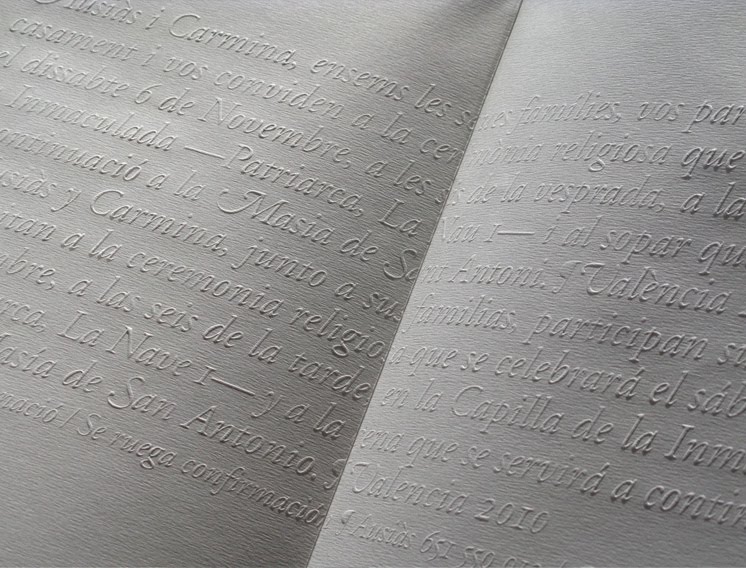 Ausiàs i Carmina, ensems les seues famílies, vos par
casament i vos conviden a la cerimònia religiosa que
el dissabte 6 de Novembre, a les sis de la vesprada, a la
Inmaculada —Patriarca, La Nau 1— i al sopar que
ontinuació a la Masia de Sant Antoni. ¶ València
usiàs y Carmina, junto a sus familias, participan su
itan a la ceremonia religiosa que se celebrará el sáb
mbre, a las seis de la tarde en la Capilla de la Inm
arca, La Nave 1— y a la cena que se servirá a contin
Masía de San Antonio. ¶ Valencia 2010
mació / Se ruega confirmación ¶ Ausiàs 651 559